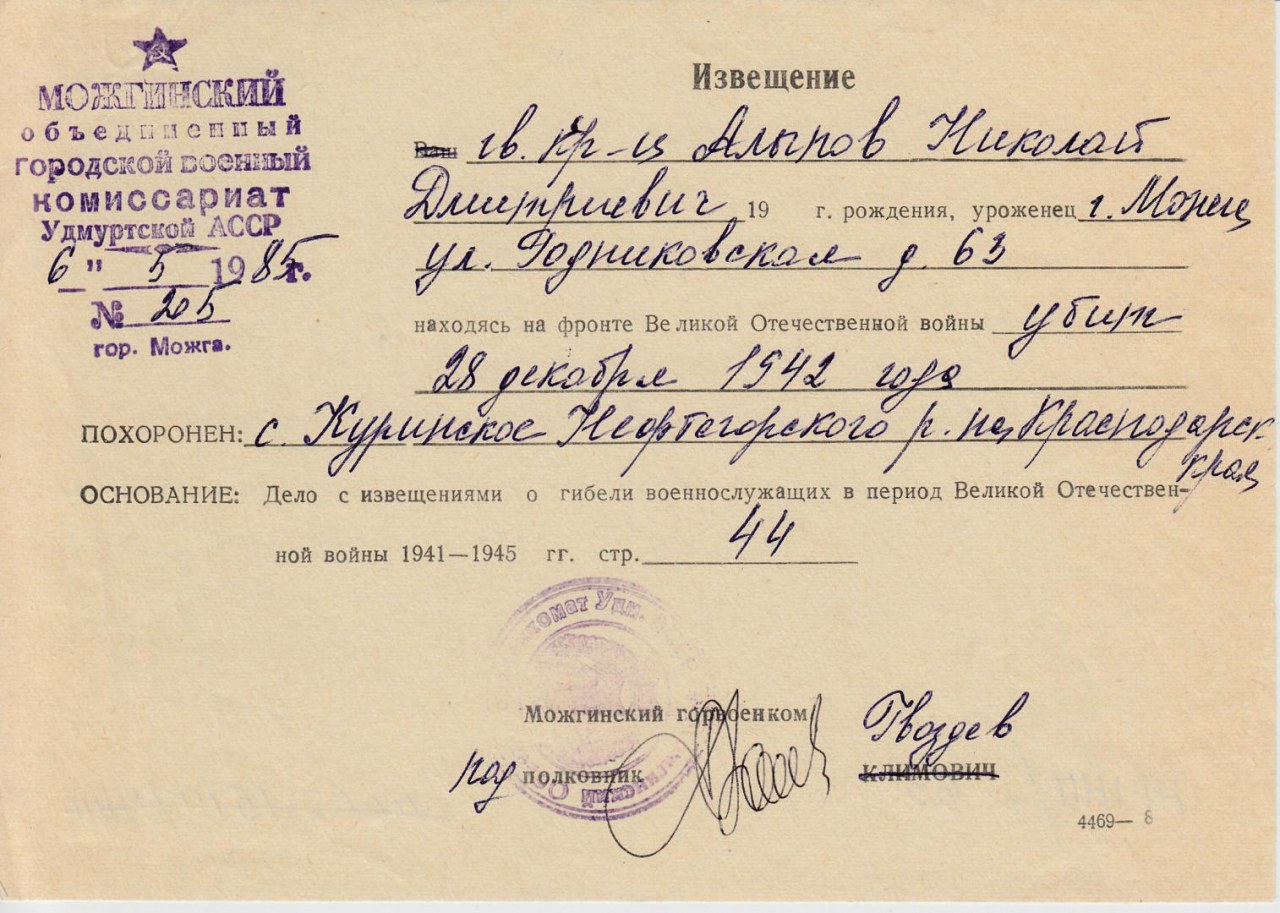 МОЖГИНСКИЙ
объединенный
городской военный
комиссариат
Удмуртской АССР
6 " 5 1985 г.
№ 205
гор. Можга.
Извещение
Ваш гв. кр-ц Алыпов Николай
Дмитриевич 19 г. рождения, уроженец г. Можга
ул. Родниковская д. 63
находясь на фронте Великой Отечественной войны убит
28 декабря 1942 года
ПОХОРОНЕН: с. Куринское Нефтегорского р. на Краснодарск.
края
ОСНОВАНИЕ: Дело с извещениями о гибели военнослужащих в период Великой Отечествен-
ной войны 1941—1945 гг. стр. 44
Можгинский горвоенком
Гвоздев
под полковник КЛИМОВИЧ
4469— 8